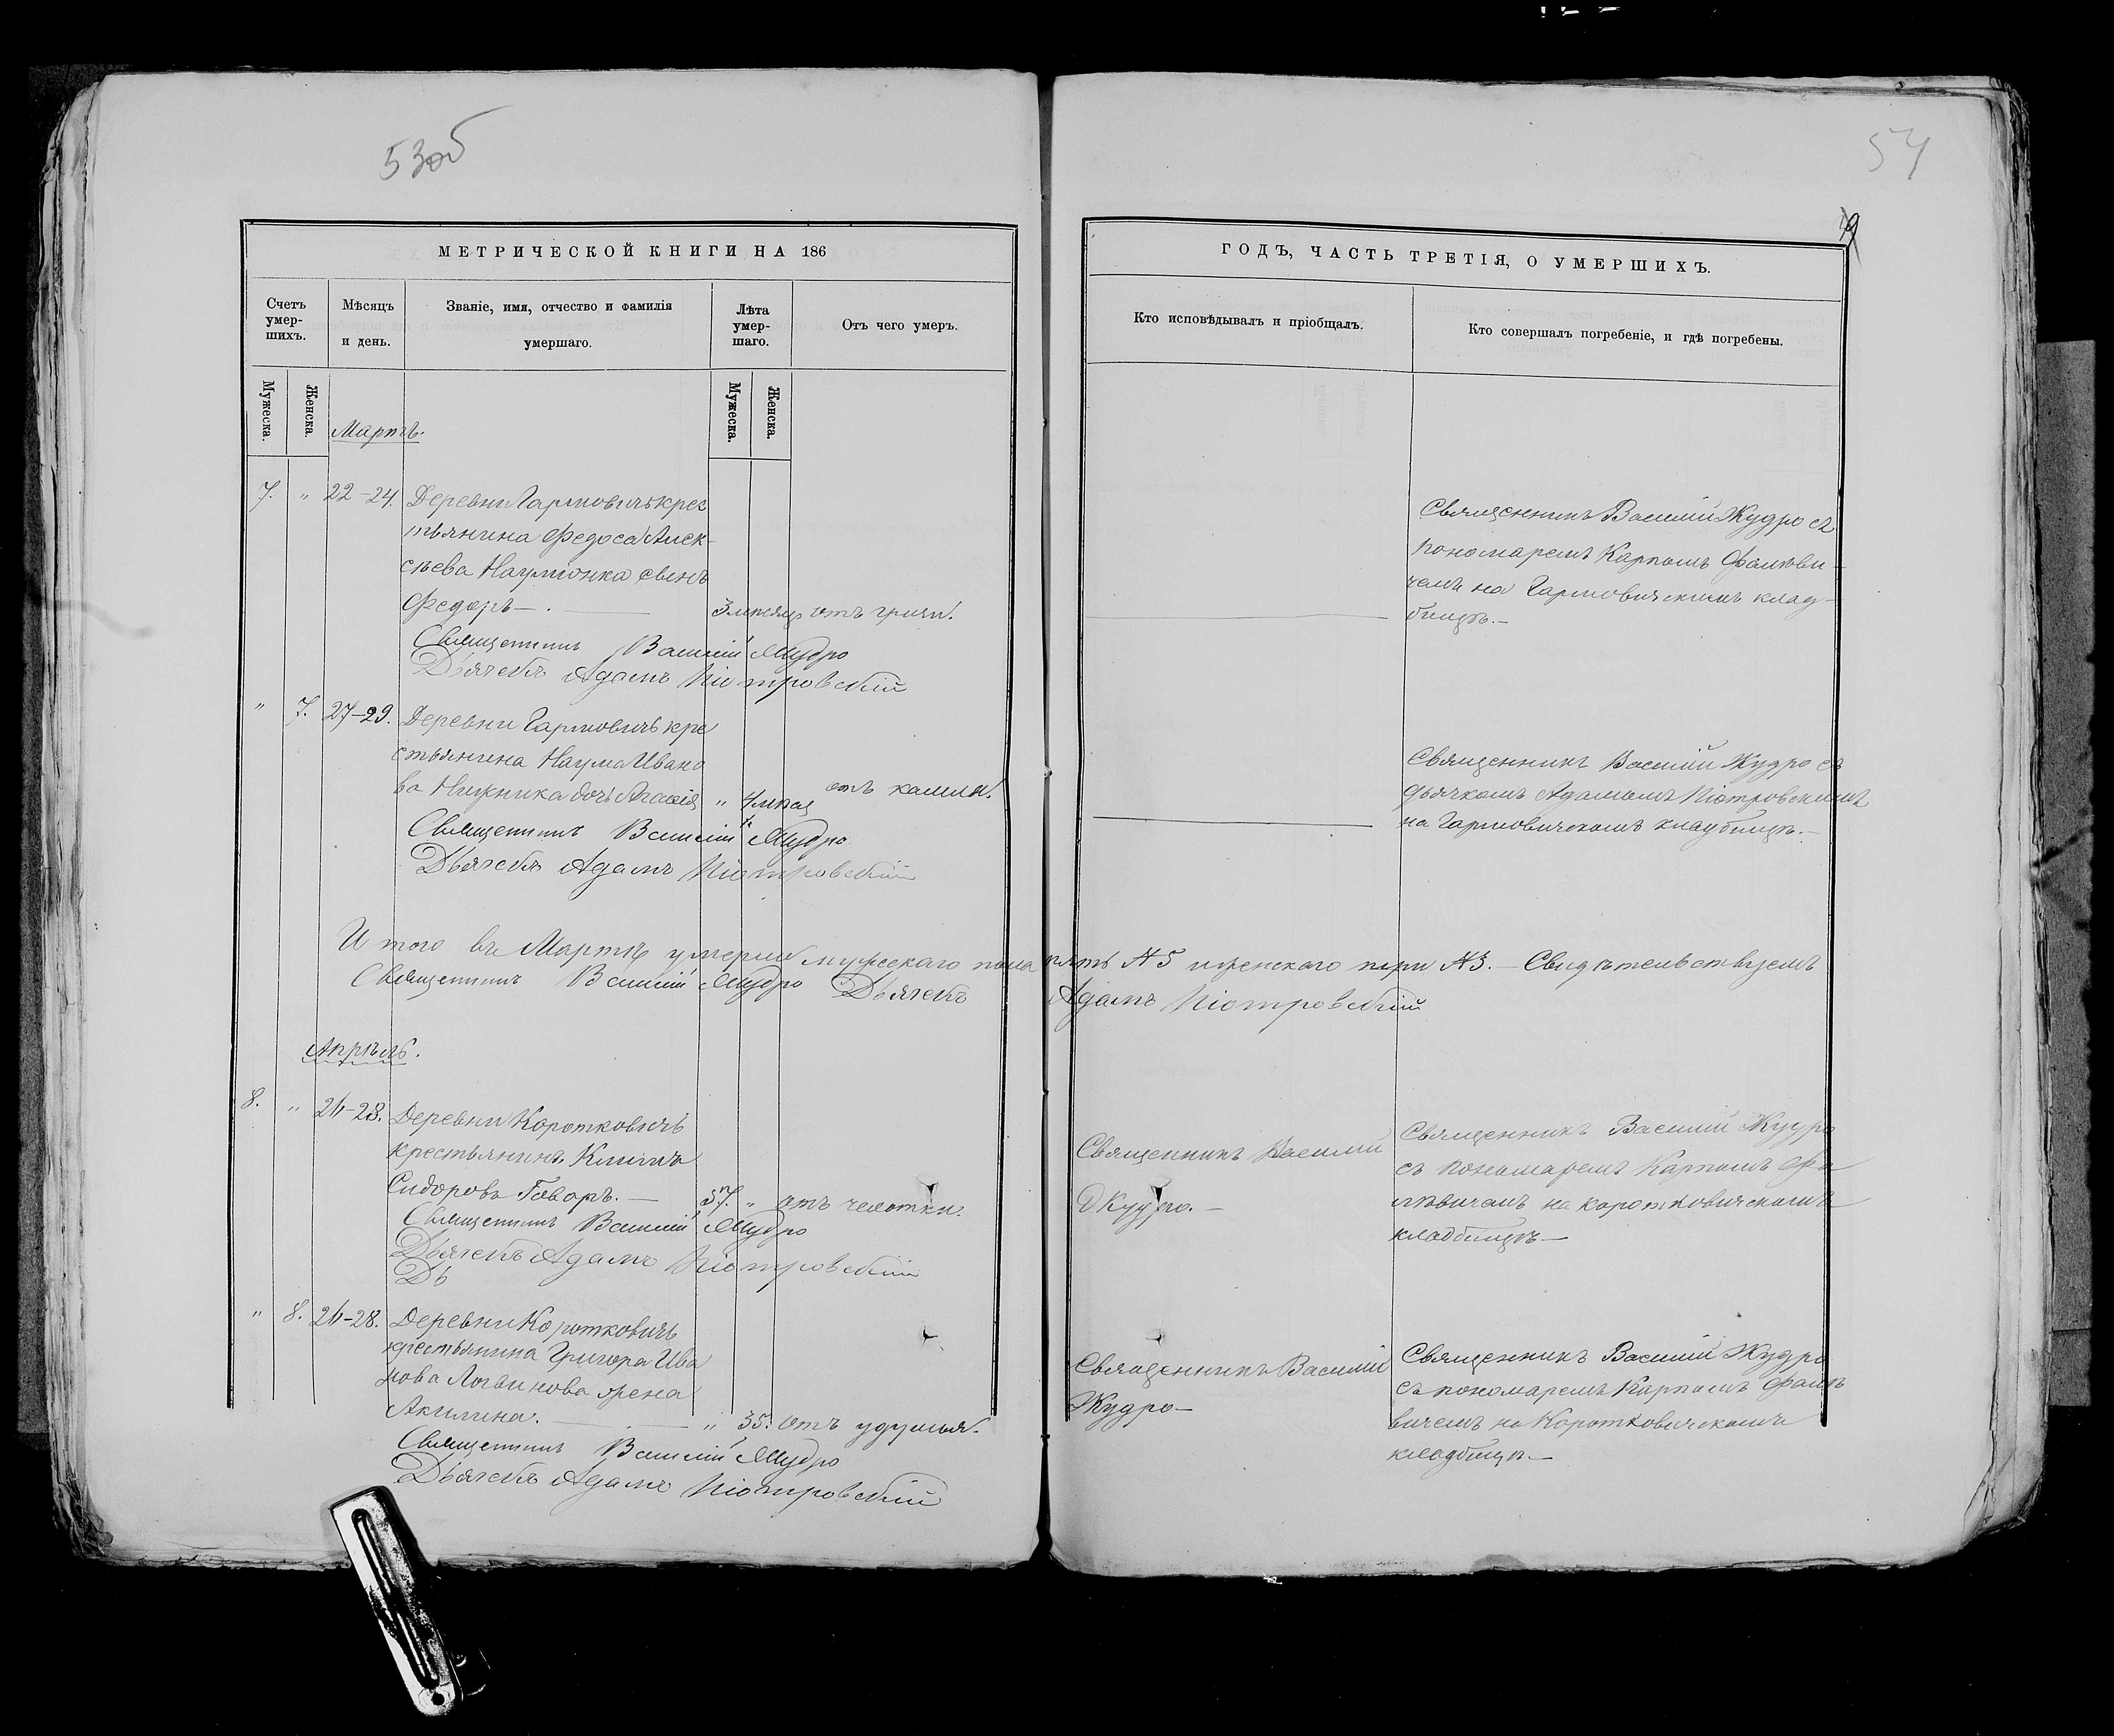 53об
МЕТРИЧЕСКОЙ КНИГИ НА 186
Счетъ умер-шихъ.
Мѣсяцъ и день.
Званіе, имя, отчество и фамилія умершаго.
Лѣта умер-шаго.
Отъ чего умеръ.
Мужеска.
Женска.
Мужеска.
Женска.
Мартъ.
7. " 22-24. Деревни Гармовичъ крес
тьянина Федоса Алек-
сѣева Наумонка сынъ
Федоръ —. 3 мѣсяц отъ грыжи.
Священникъ Василій Жудро
Дьячекъ Адамъ Піотровскій
" 7. 27-29. Деревни Гармовичъ кре
стьянина Наума Ивано
ва Нижника дочь " 4 отъ кашля.
Священникъ Василій Жудро
Дьячекъ Адамъ Піотровскій
И того въ Мартѣ умерло мужескаго пола пять № 5 женскаго три № 3. — Свидѣтельствуемъ
Священникъ Василій Жудро Дьячекъ Адамъ Піотровскій
Апрѣль.
8. " 26-28. Деревни Коротковичъ
крестьянинъ Климъ
Сидоровъ Говоръ. — 57. " отъ чехотки.
Священникъ Василій Жудро
Дьячекъ Адамъ Піотровскій
Дь
" 8. 26-28. Деревни Коротковичъ
крестьянина Григора Ива
нова Логвинова жена
Акилина. — " 35. отъ удушья.
Священникъ Василій Жудро
Дьячекъ Адамъ Піотровскій
54
9
ГОДЪ, ЧАСТЬ ТРЕТІЯ, О УМЕРШИХЪ.
Кто исповѣдывалъ и пріобщалъ.
Кто совершалъ погребеніе, и гдѣ погребены.
Священникъ Василій Жудро съ
пономаремъ Карпомъ Фалѣви-
чемъ на Гармовичскомъ клад-
бищѣ.—
Священникъ Василій Жудро съ
дьячкомъ Адамомъ Піотровскимъ
на Гармовичскомъ кладбищѣ.—
Священникъ Василій
Жудро.—
Священникъ Василій Жудро
съ пономаремъ Карпомъ Фа
лѣвичемъ на Коротковичскомъ
кладбищѣ—
Священникъ Василій
Жудро—
Священникъ Василій Жудро
съ пономаремъ Карпомъ Фалѣ
вичемъ на Коротковичскомъ
кладбищѣ.—